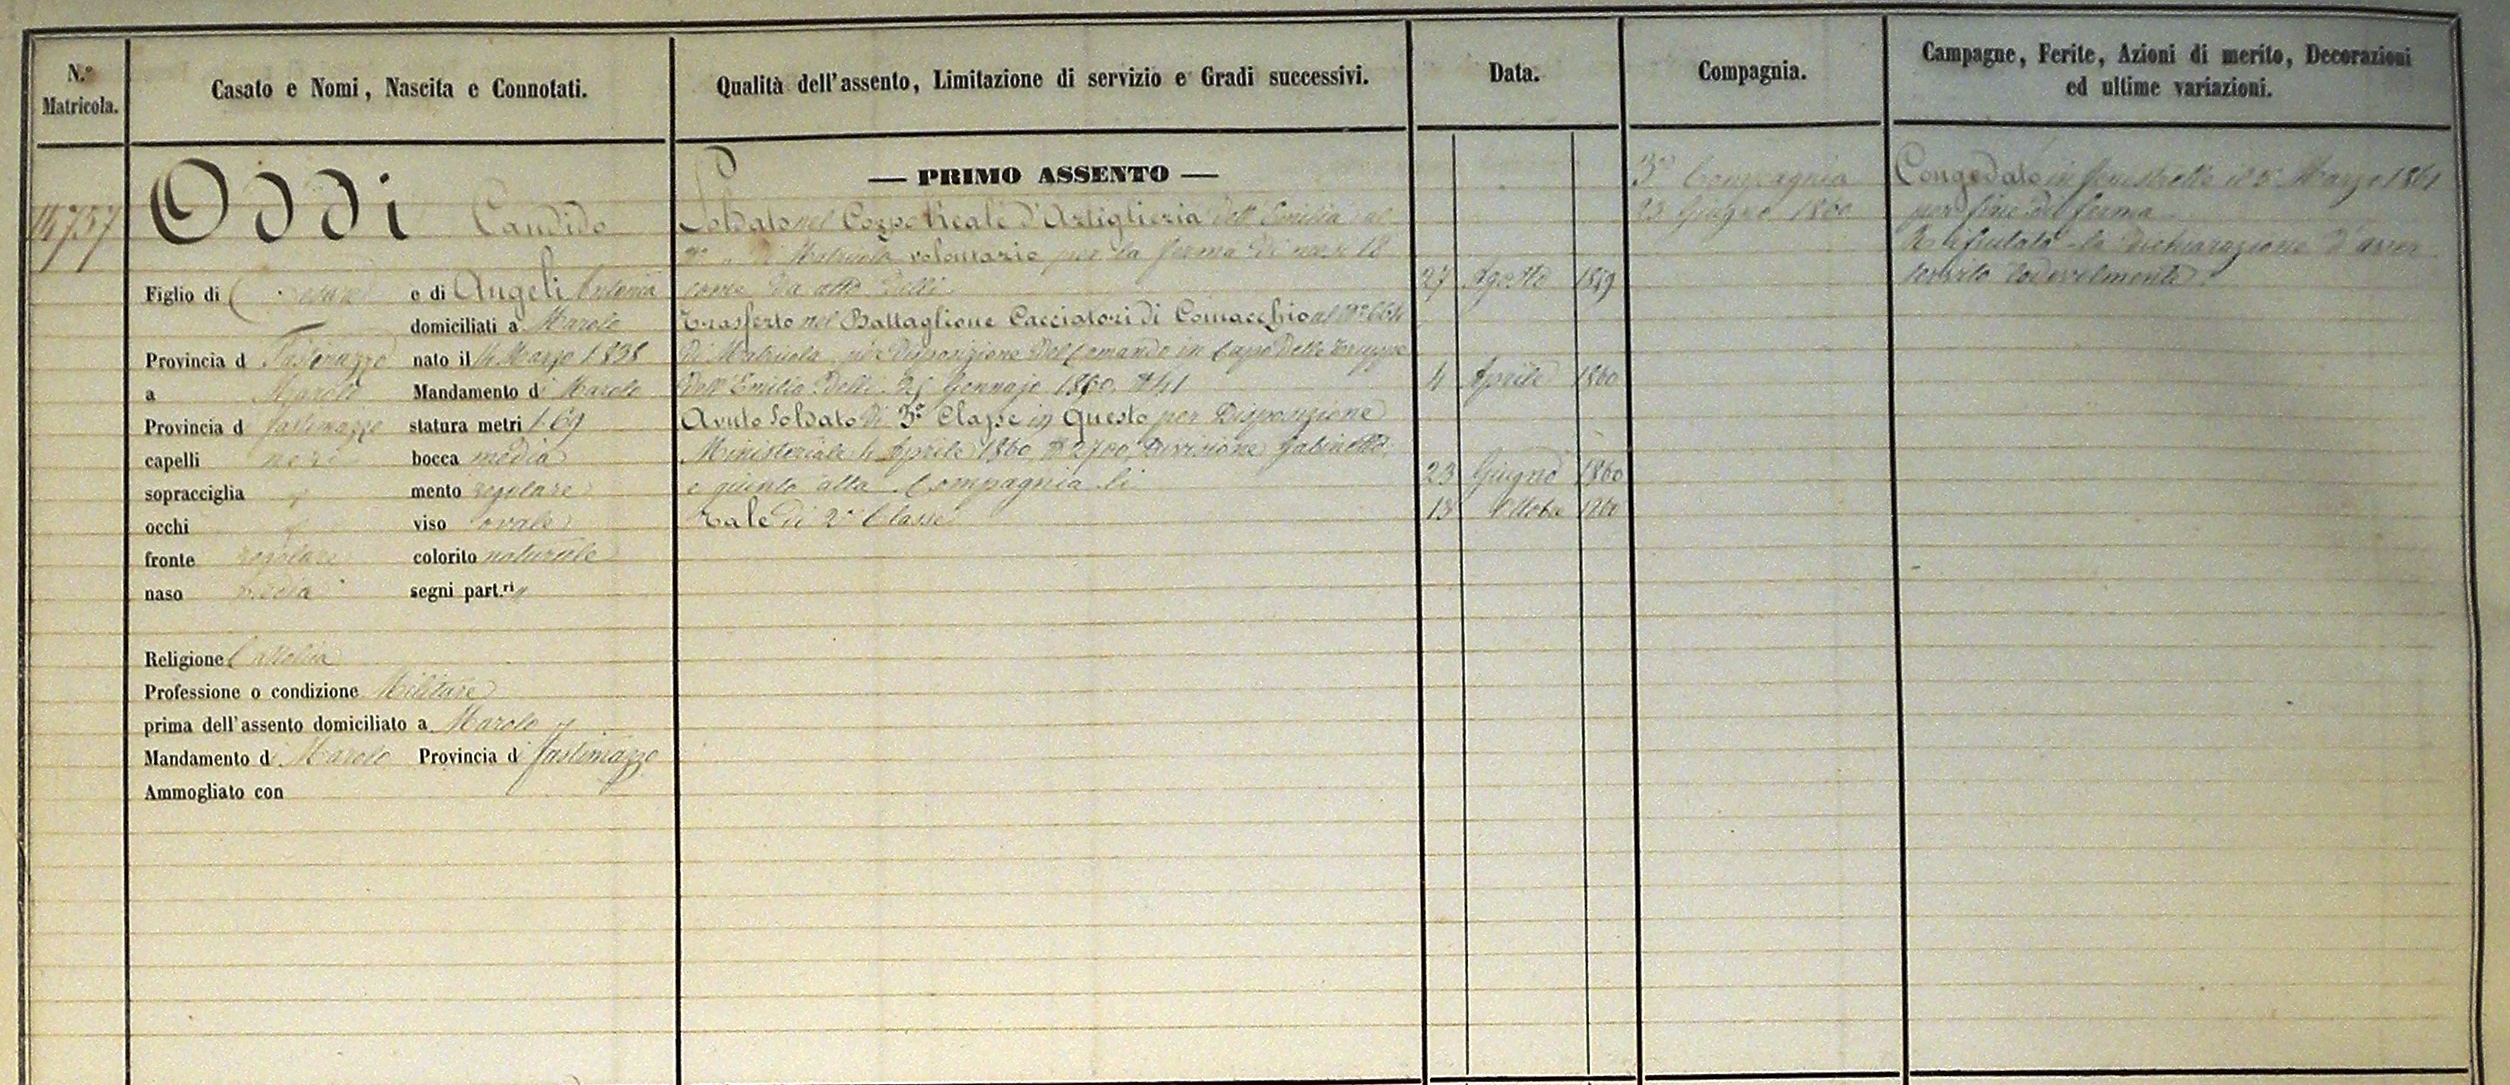 N.º Matricola.
Casato e Nomi, Nascita e Connotati.
Qualità dell'assento, Limitazione di servizio e Gradi successivi.
Data.
Compagnia.
Campagne, Ferite, Azioni di merito, Decorazioni
ed ultime variazioni.
14757
Oddi Candido
Figlio di Cesare e di Angeli Antonia
domiciliati a Marolo
Provincia d nato il 14 Marzo 1838
a Marolo Mandamento di Marolo
Provincia d statura metri 1.69
capelli neri bocca media
sopracciglia mento regolare
occhi viso ovale
fronte regolare colorito naturale
naso media segni part.ri "
Religione Cattolica
Professione o condizione Militare
prima dell'assento domiciliato a Marolo
Mandamento di Marolo Provincia di
Ammogliato con
— PRIMO ASSENTO —
Soldato nel Corpo Reale d'Artiglieria dell'Emilia al
di Matricola volontario per la ferma di mesi 18
come da atto delli 27 Agosto 1859
Trasferto nel Battaglione Cacciatori di Comacchio al Nº 664
di Matricola per disposizione del Comando in Capo delle Truppe
dell'Emilia delli 25 Gennajo 1860 Nº 41 4 Aprile 1860
Avuto Soldato di 3ª Classe in Questo per Disposizione
Ministeriale 4 Aprile 1860, Nº 2700, Divisione Gabinetto,
e giunto alla Compagnia li 23 Giugno 1860
Tale di 2ª Classe 13 Ottobre 1860
3ª Compagnia
23 Giugno 1860
Congedato in Fenestrelle il 3 Marzo 1861
per fine di ferma
Rifiutata la dichiarazione d'aver
servito lodevolmente.